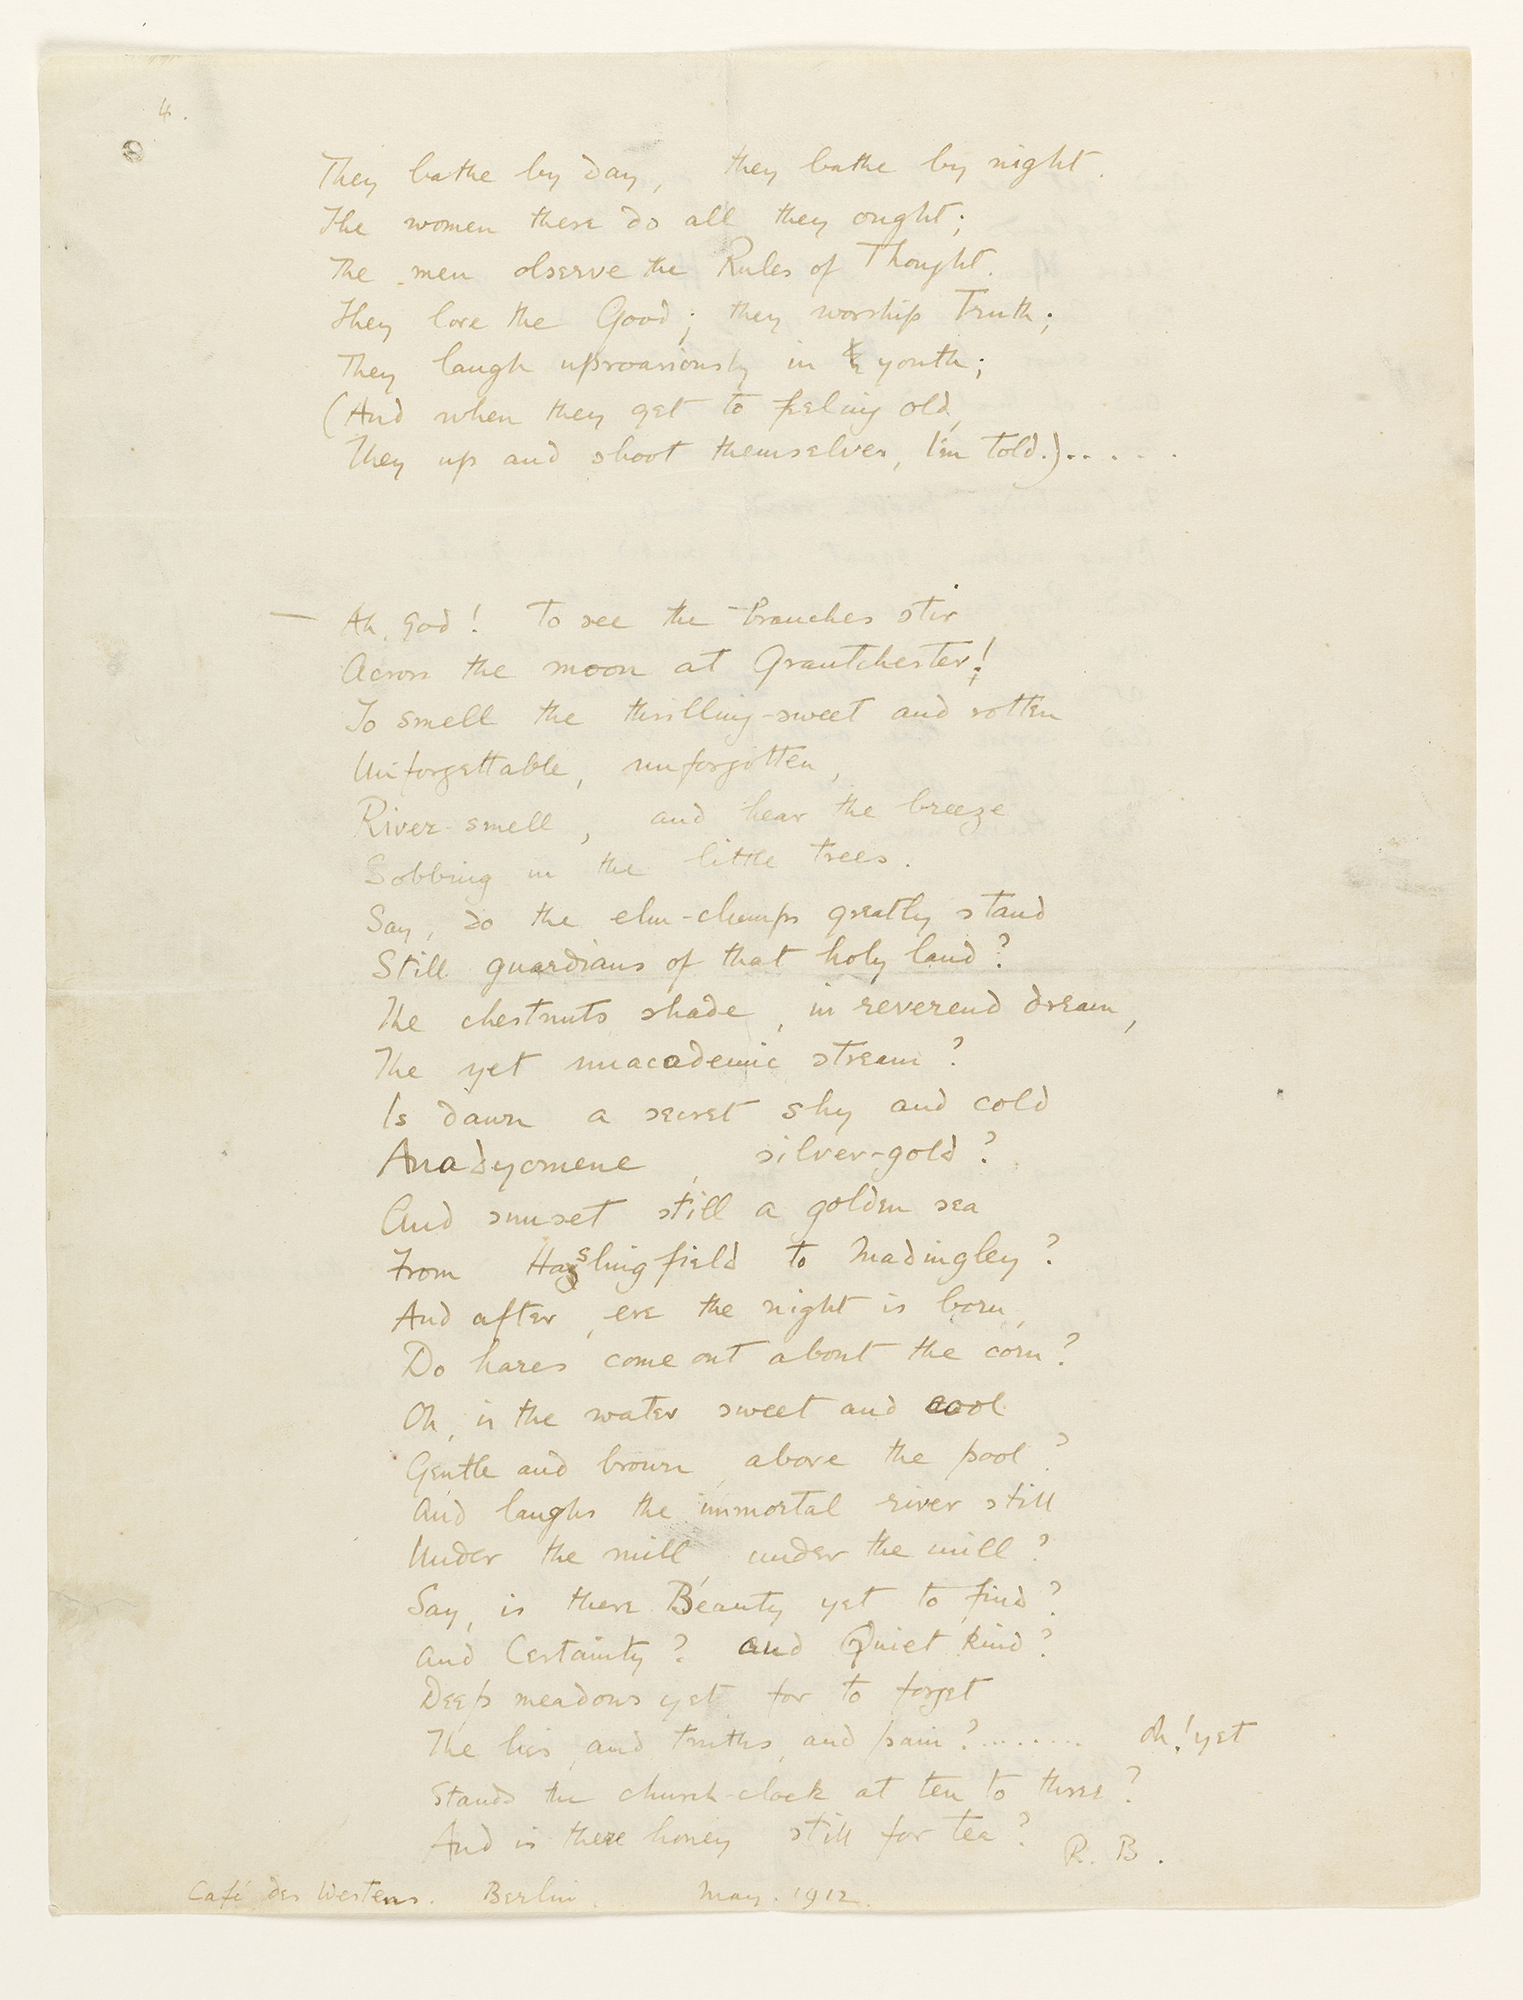 4.
They bathe by day, they bathe by night.
The women there do all they ought;
The men observe the Rules of Thought.
They love the Good; they worship Truth;
They laugh uproariously in youth;
(And when they get to feeling old,
They up and shoot themselves, I'm told.).....
— Ah, God! To see the branches stir
Across the moon at Grantchester!
To smell the thrilling-sweet and rotten
Unforgettable, unforgotten,
River smell, and hear the breeze
Sobbing in the little trees.
Say, do the elm-clumps greatly stand
Still guardians of that holy land?
The chestnuts shade, in reverend dream,
The yet unacademic stream?
Is dawn a secret shy and cold
Anadyomene, silver-gold?
And sunset still a golden sea
From Haslingfield to Madingley?
And after, ere the night is born,
Do hares come out about the corn?
Oh, is the water sweet and cool
Gentle and brown, above the pool?
And laughs the immortal river still
Under the mill, under the mill?
Say, is there Beauty yet to find?
And Certainty? and Quiet kind?
Deep meadows yet, for to forget
The lies, and truths, and pain?......... oh! yet
Stands the church-clock at ten to three?
And is there honey still for tea?
R. B.
Café des Westens. Berlin. May. 1912.